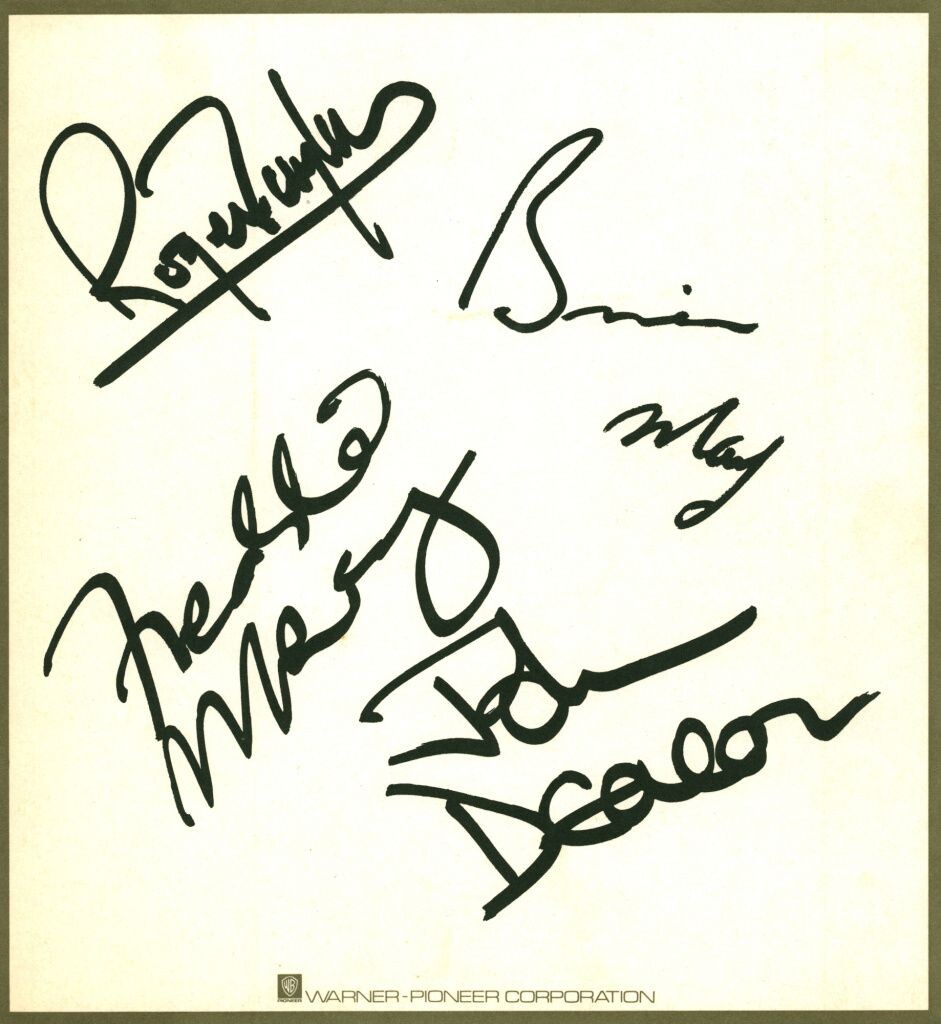 Roger Taylor
Brian
May
Freddie
Mercury
John
Deacon
WB
PIONEER
WARNER-PIONEER CORPORATION